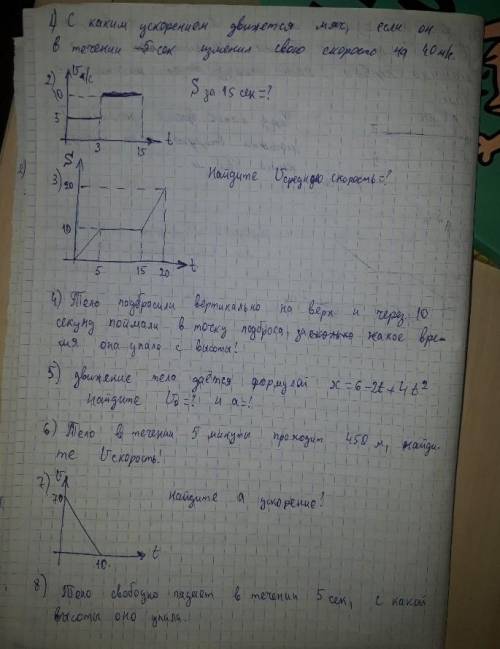 1) С каким ускорением движется мяч, если он
в течении 5 сек изменил свою скорость на 40 м/с.
2) V м/с
S за 15 сек =?
10
5
3 15 t
3)
Найдите Vсреднюю скорость=?
20
10
5 15 20 t
4) Тело подбросили вертикально на вверх и через 10
секунд поймали в точку подброса, за какое вре-
мя она упало с высоты!
5) движение тела даётся формулой x=6-2t+4t²
Найдите V₀=? и a=?
6) Тело в течении 5 минуты проходит 450 м, найди-
те Vскорость!
7) V
70
Найдите a ускорение!
10 t
8) Тело свободно падает в течении 5 сек, с какой
высоты оно упала.